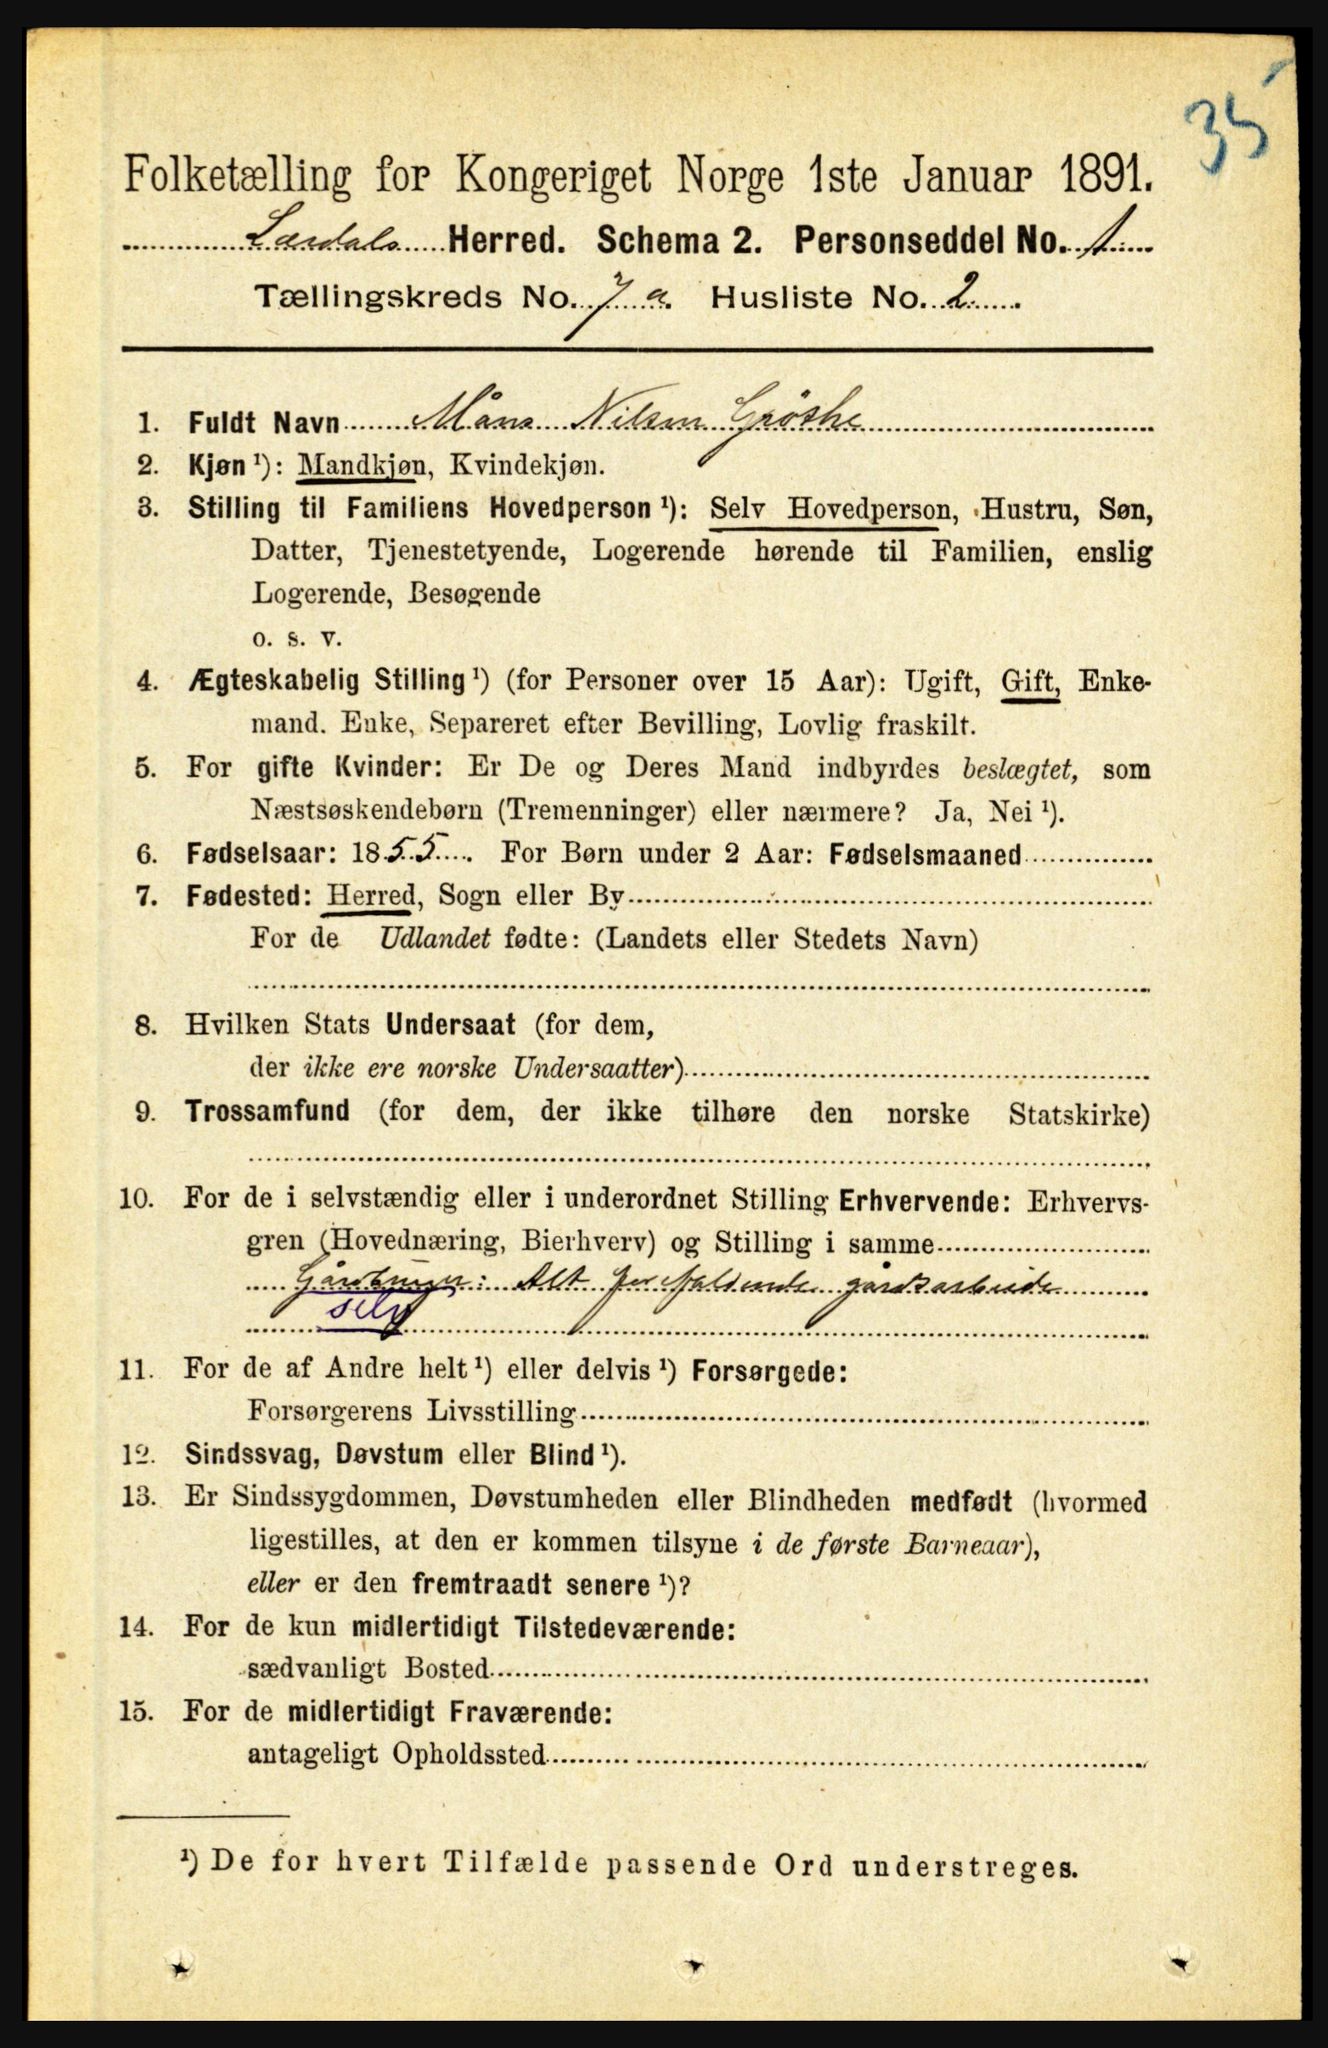 35
Folketælling for Kongeriget Norge 1ste Januar 1891.
Lærdals Herred. Schema 2. Personseddel No. 1
Tællingskreds No. 7 a. Husliste No. 2
1. Fuldt Navn Måns Nilsen Grøthe
2. Kjøn ¹): Mandkjøn, Kvindekjøn.
3. Stilling til Familiens Hovedperson ¹): Selv Hovedperson, Hustru, Søn,
Datter, Tjenestetyende, Logerende hørende til Familien, enslig
Logerende, Besøgende
o. s. v.
4. Ægteskabelig Stilling ¹) (for Personer over 15 Aar): Ugift, Gift, Enke-
mand. Enke, Separeret efter Bevilling, Lovlig fraskilt.
5. For gifte Kvinder: Er De og Deres Mand indbyrdes beslægtet, som
Næstsøskendebørn (Tremenninger) eller nærmere? Ja, Nei ¹).
6. Fødselsaar: 1855. For Børn under 2 Aar: Fødselsmaaned
7. Fødested: Herred, Sogn eller By
For de Udlandet fødte: (Landets eller Stedets Navn)
8. Hvilken Stats Undersaat (for dem,
der ikke ere norske Undersaatter)
9. Trossamfund (for dem, der ikke tilhøre den norske Statskirke)
10. For de i selvstændig eller i underordnet Stilling Erhvervende: Erhvervs-
gren (Hovednæring, Bierhverv) og Stilling i samme
Gårdbruger: Alt forefaldende gårdsarbeide
selv
11. For de af Andre helt ¹) eller delvis ¹) Forsørgede:
Forsørgerens Livsstilling
12. Sindssvag, Døvstum eller Blind ¹).
13. Er Sindssygdommen, Døvstumheden eller Blindheden medfødt (hvormed
ligestilles, at den er kommen tilsyne i de første Barneaar),
eller er den fremtraadt senere ¹)?
14. For de kun midlertidigt Tilstedeværende:
sædvanligt Bosted
15. For de midlertidigt Fraværende:
antageligt Opholdssted
¹) De for hvert Tilfælde passende Ord understreges.